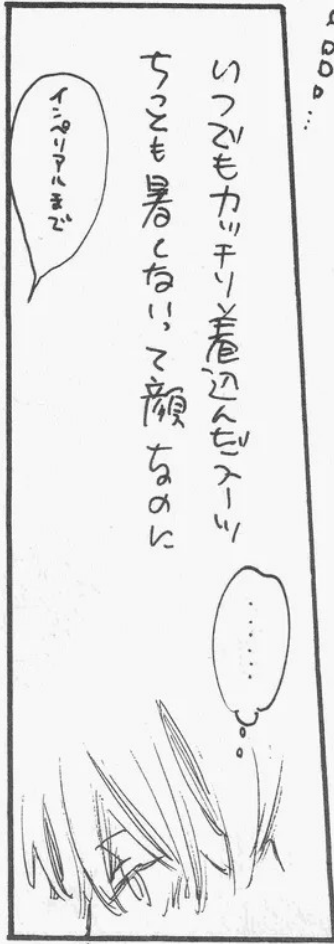 いつでもカッチリ着込んだスーツ
ちっとも暑くないって顔なのに
………
インペリアルまで